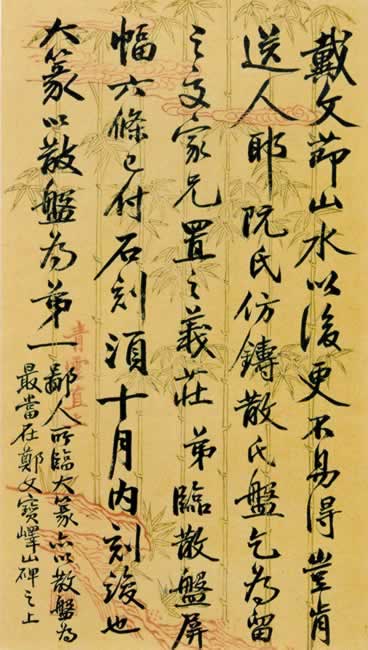 戴文節山水以後更不易得豈肯
送人耶阮氏仿鑄散氏盤乞為留
之交家兄置之義莊弟臨散盤屏
幅六條已付石刻須十月內刻竣也
大篆以散盤為第一鄙人所臨大篆亦以散盤為
最當在鄭文寶嶧山碑之上
青雲直上